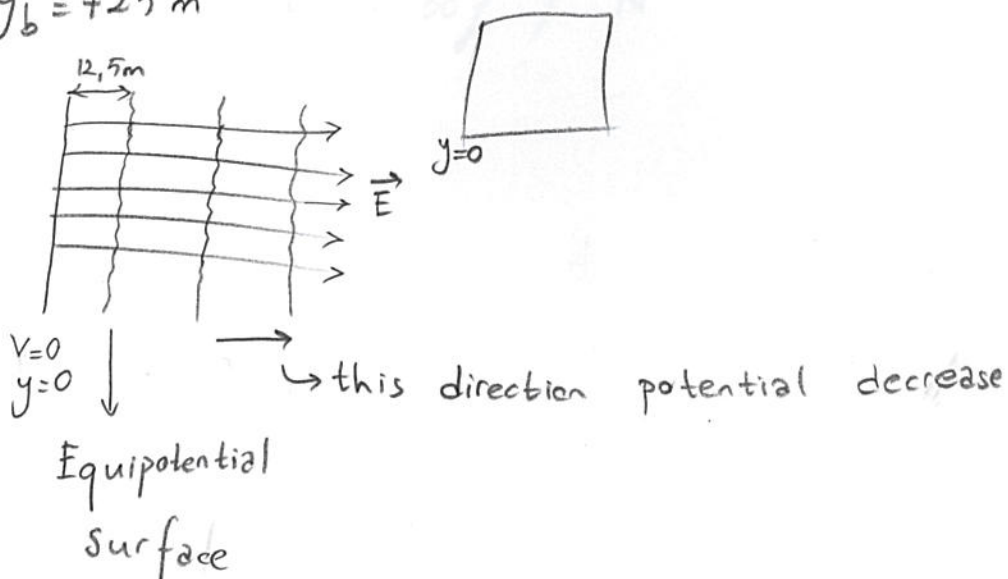 y_b = +25 m
12,5m
y=0
E
V=0
y=0
↳ this direction potential decrease
Equipotential
surface